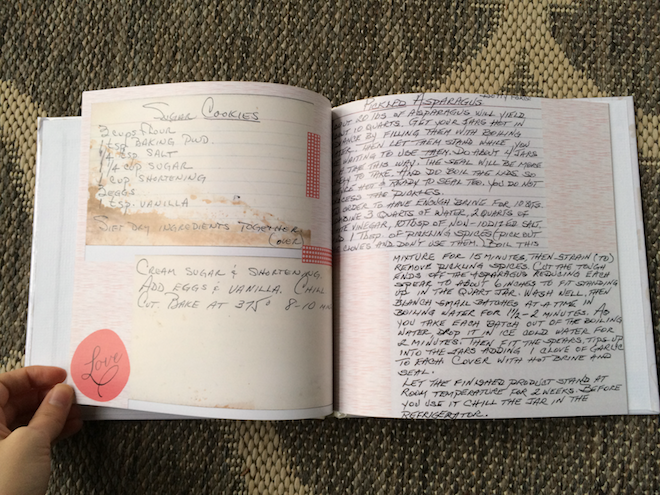 Sugar Cookies
2 cups flour
tsp. baking pwd.
tsp salt
1/4 cup sugar
cup shortening
eggs
tsp. vanilla
Sift dry ingredients together
(over)
Cream sugar & shortening.
Add eggs & vanilla. Chill
Cut. Bake at 375° 8-10
Love
Pickled Asparagus
20 lbs of asparagus will yield
10 quarts. Get your jars hot in
by filling them with boiling
then let them stand while you
waiting to use them. Do about 4 jars
time this way. The seal will be more
to take. And do boil the lids so
hot & ready to seal too. You do not
process the pickles.
order to have enough brine for 10 qts.
3 quarts of water, 2 quarts of
vinegar, 10 tbsp of non-iodized salt,
1 tbsp. of pickling spices (pick out
cloves and don't use them.) Boil this
mixture for 15 minutes, then strain (to)
remove pickling spices. Cut the tough
ends off the asparagus reducing each
spear to about 6 inches to fit standing
up in the quart jar. Wash well, then
blanch small batches at a time in
boiling water for 1½-2 minutes. As
you take each batch out of the boiling
water drop it in ice cold water for
2 minutes. Then fit the spears, tips up
into the jars adding 1 clove of garlic
to each. Cover with hot brine and
seal.
Let the finished product stand at
room temperature for 2 weeks. Before
you use it chill the jar in the
refrigerator.